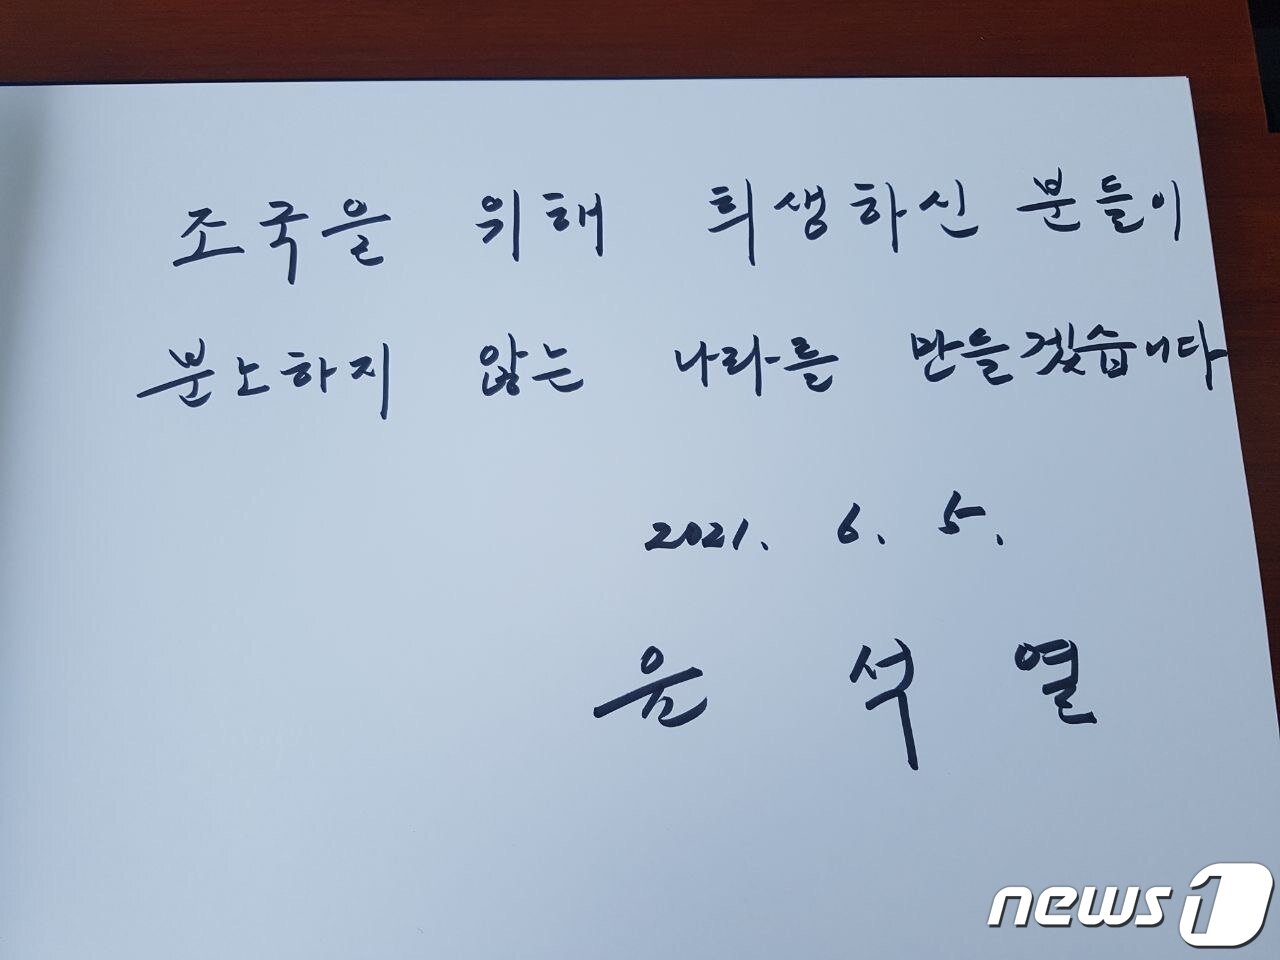 조국을 위해 희생하신 분들이
분노하지 않는 나라를 만들겠습니다
2021. 6. 5.
윤 석 열
news1